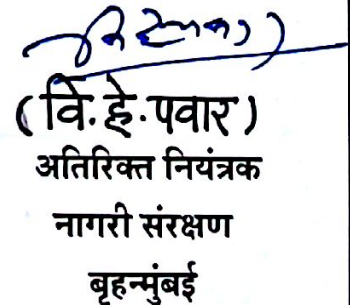 (वि.हे.पवार)
अतिरिक्त नियंत्रक
नागरी संरक्षण
बृहन्मुंबई